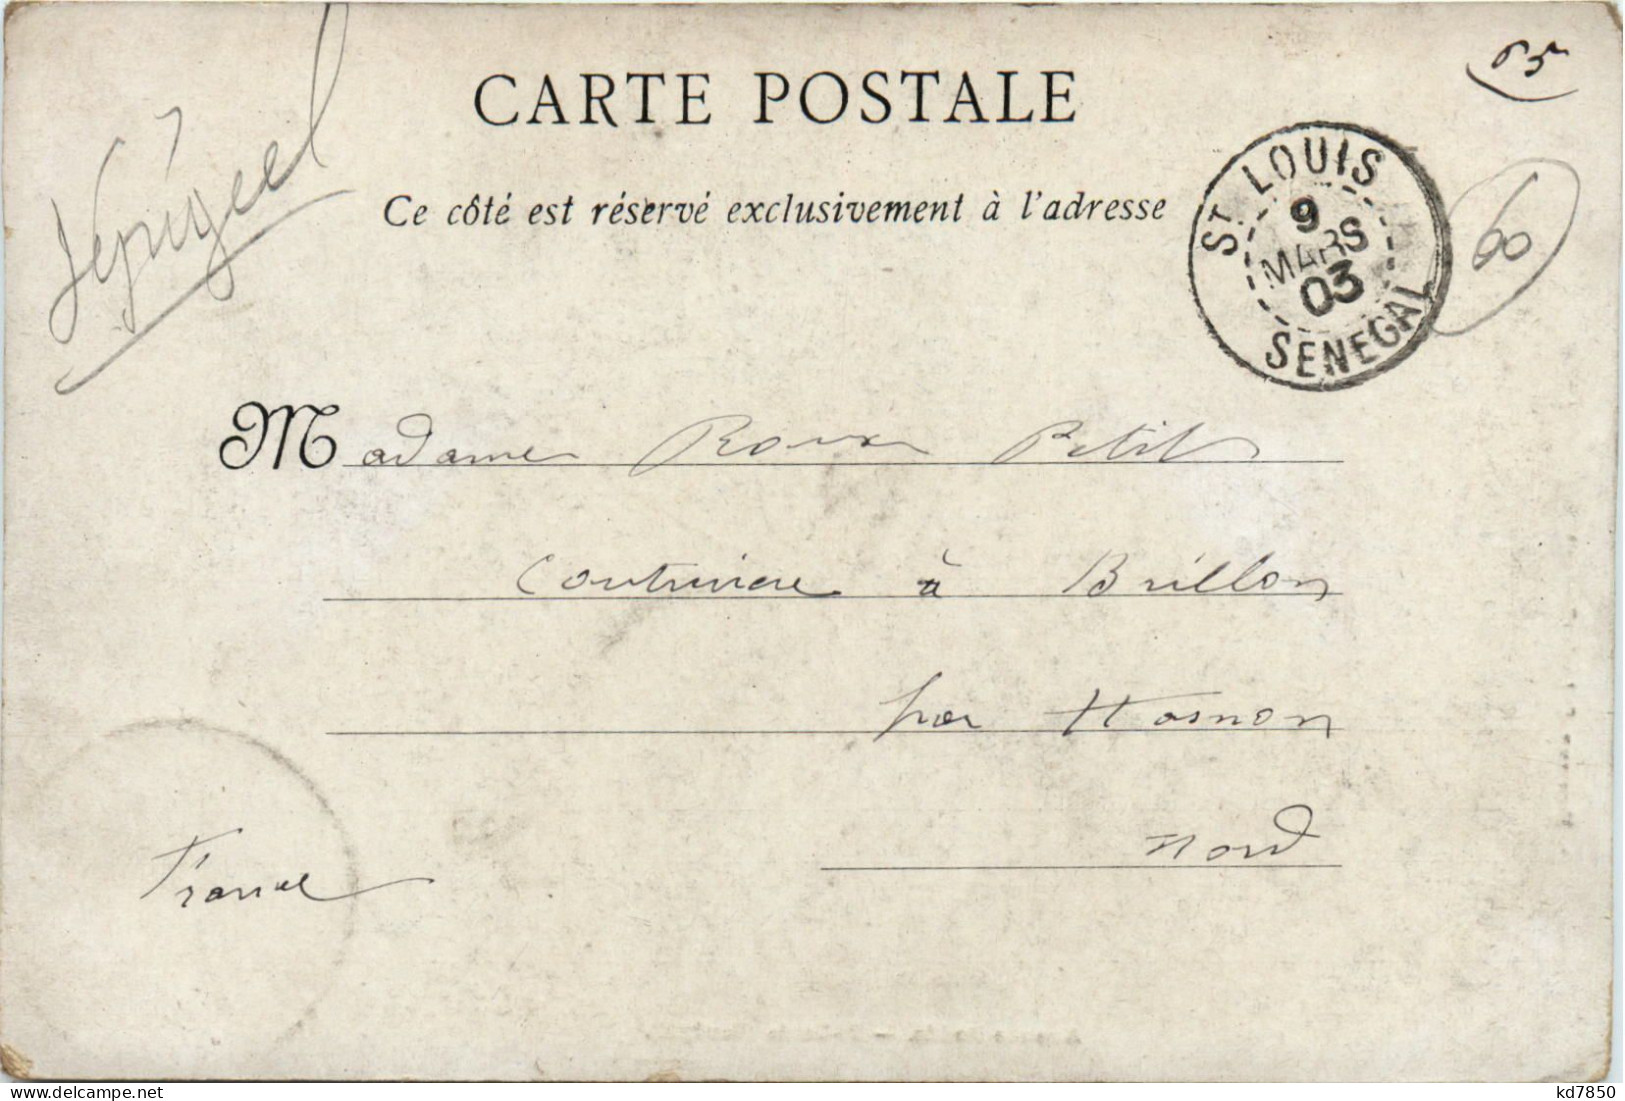 Sénégal
65
CARTE POSTALE
Ce côté est réservé exclusivement à l'adresse
ST LOUIS
9
MARS
03
SENEGAL
60
Madame Roux Petit
Couturiere à Brillon
par Hasnon
Nord
France
www.delcampe.net
kd7850